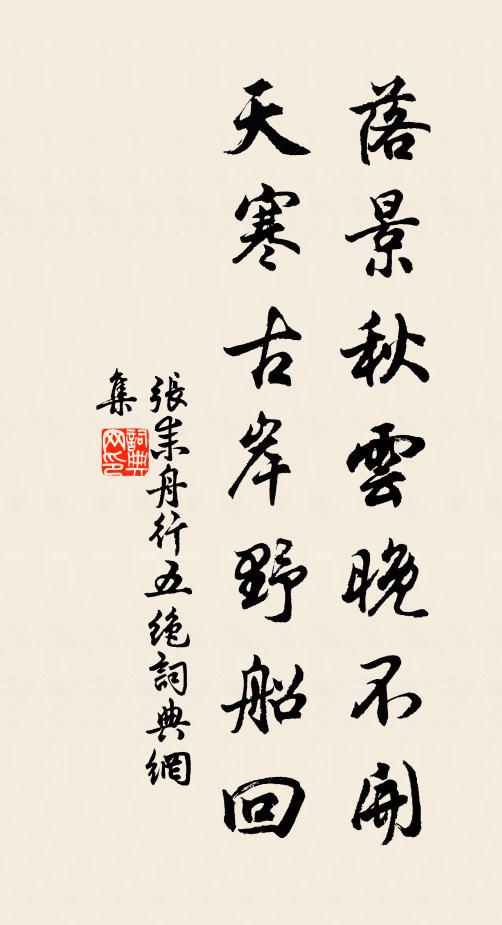 落景秋雲晚不開
天寒古岸野船回
張耒舟行五絶詞典網
集
詞典网印